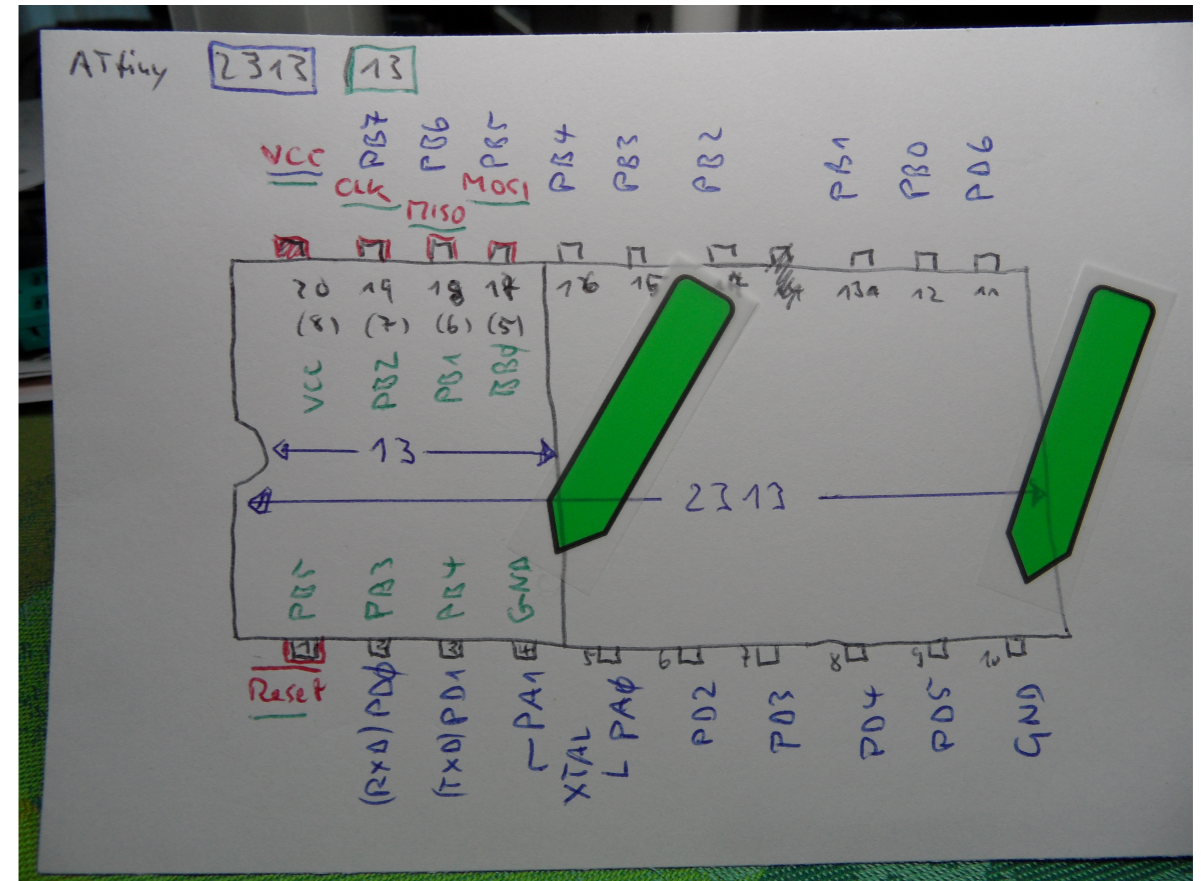 ATtiny 2313 13
VCC PB7 PB6 PB5 PB4 PB3 PB2 PB1 PB0 PD6
CLK MISO MOSI
20 19 18 17 16 15 13 12 11
(8) (7) (6) (5)
VCC PB2 PB1
13
2313
PB5 PB3 PB4 GND
1 2 3 4 5 6 7 8 9 10
Reset (RXD) PDØ (TXD) PD1 PA1 XTAL PAØ PD2 PD3 PD4 PD5 GND